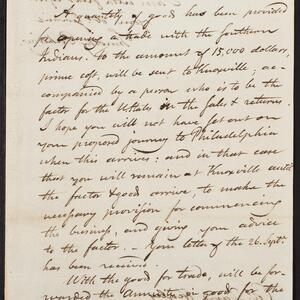 A quantity of goods has been provided
for opening a trade with the Southern
Indians. To the amount of 15,000 dollars,
prime cost, will be sent to Knoxville, ac-
companied by a person who is to be the
factor for the UStates in the sales & returns.
I hope you will not have set out on
your proposed journey to Philadelphia
when this arrives: and in that case
that you will remain at Knoxville until
the factor & goods arrive, to make the
necessary provision for commencing
the business, and giving your advice
to the factor. – Your letter of the 26.
has been received.
With the goods for trade, will be for-
warded the annuity in goods for the